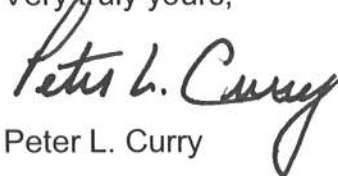 Very truly yours,
Peter L. Curry
Peter L. Curry